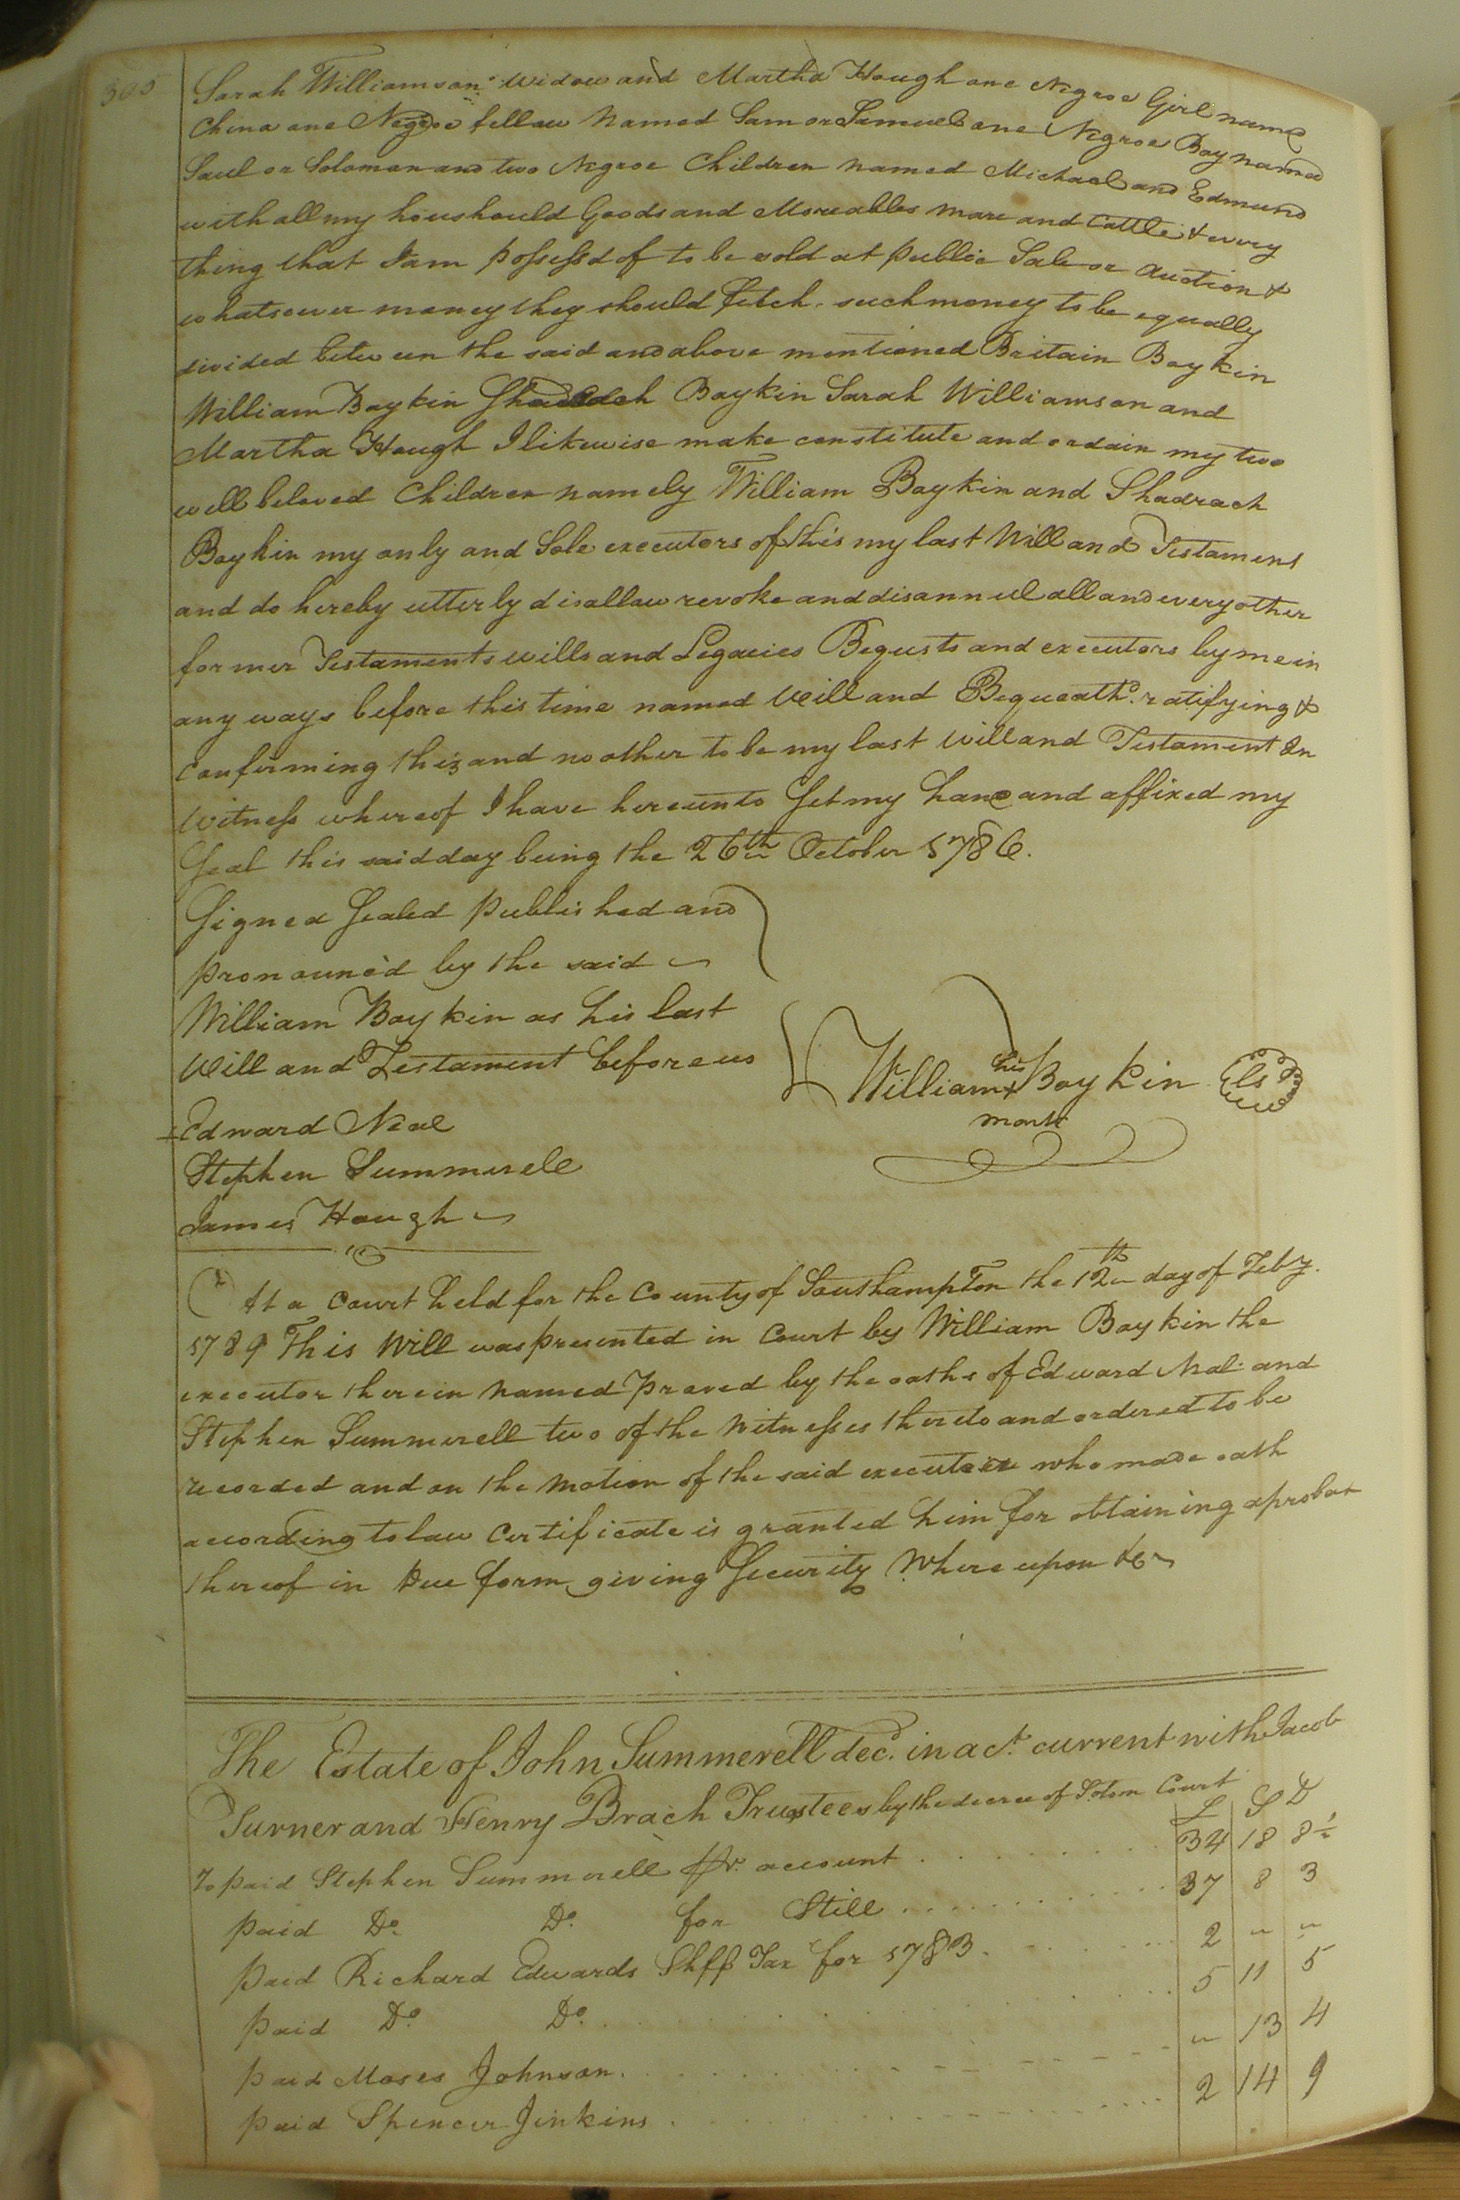 305
Sarah Williamson widow and Martha Hough one Negroe Girl named
China one Negroe fellow Named Sam or Samuel one Negroe Boy named
Saul or Soloman and two Negroe Children named Michael and Edmund
with all my houshould Goods and Moveables mare and Cattle & every
thing that I am possessd of to be sold at public Sale or Auction &
whatsoever money they should fetch such money to be equally
divided between the said and above mentioned Britain Boykin
William Boykin Shadrach Boykin Sarah Williamson and
Martha Hough I likewise make constitute and ordain my two
well beloved Children namely William Boykin and Shadrach
Boykin my only and Sole executors of this my last Will and Testament
and do hereby utterly disallow revoke and disannul all and every other
former Testaments wills and Legacies Bequsts and executors by me in
any ways before this time named Will and Bequeathd. ratifying &
confirming this and no other to be my last will and Testament In
Witness whereof I have hereunto Set my hand and affixed my
Seal this said day being the 26th October 1786.
Signed Sealed Published and
pronounc'd by the said
William Boykin as his last
Will and Testament before us
William his + mark Boykin Ls
Edward Neal
Stephen Summerell
James Hough
At a Court held for the County of Southampton the 12th day of Feby.
1789 This Will was presented in Court by William Boykin the
executor therein Named proved by the oaths of Edward Neal and
Stephen Summerell two of the Witnesses thereto and ordered to be
recorded and on the Motion of the said executor who made oath
according to law Certificate is granted him for obtaining a probat
thereof in due form giving Security Where upon &c
The Estate of John Summerell decd. in act. current with Jacob
Turner and Henry Brach Trustees by the decree of Soton Court
£ S D
To paid Stephen Summerell pr. account 34 18 8½
paid Do. Do. for Still 37 8 3
paid Richard Edwards Shff Tax for 1783 2 " "
paid Do. Do. 5 11 5
paid Moses Johnson " 13 4
paid Spencer Jinkins 2 14 9